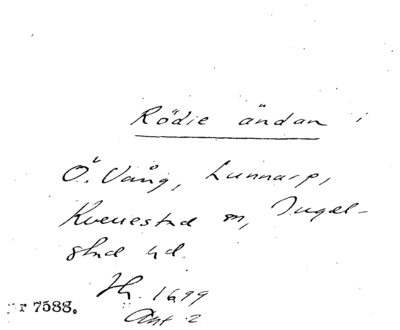 Rödie ändan i
Ö. Vång, Lunnarp,
Kverrestad sn, Ingel-
stad hd.
1699
Akt 2
r 7588.